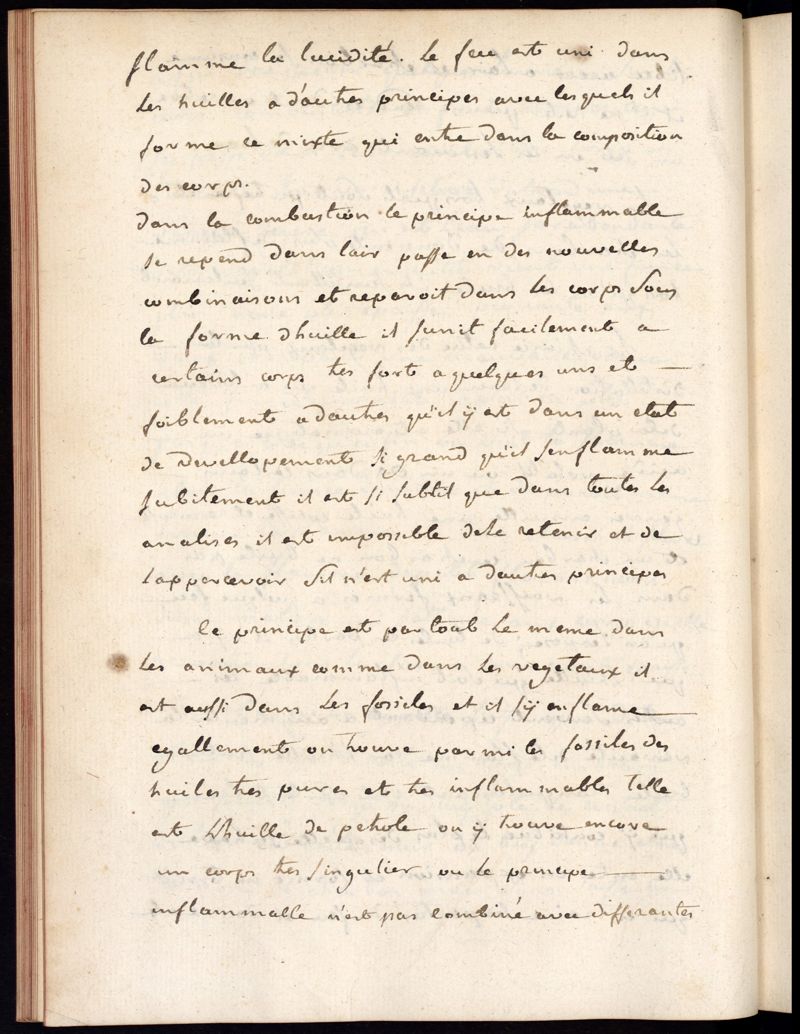 flamme la lucidité. Le feu est uni dans
les huilles a d'autres principes avec lesquels il
forme ce mixte qui entre dans la composition
des corps.
dans la combustion le principe inflammable
se repend dans lair passe en des nouvelles
combinaisons et reparoit dans les corps sous
la forme dhuille il sunit facilement a
certains corps tres fort a quelques uns et
foiblement a dautres qu'il ÿ est dans un etat
de devellopement si grand qu'il senflamme
subitement il est si subtil que dans toutes les
analises il est impossible de le retenir et de
lappercevoir sil n'est uni a dautres principes
ce principe est par tout le meme dans
les animaux comme dans les vegetaux il
est aussi dans les fossiles et il sÿ enflame
egallement on trouve parmi les fossiles des
huiles tres pures et tres inflammables telle
est Lhuille de petrole on ÿ trouve encore
un corps tres singulier ou le principe
inflammable n'est pas combiné avec differantes